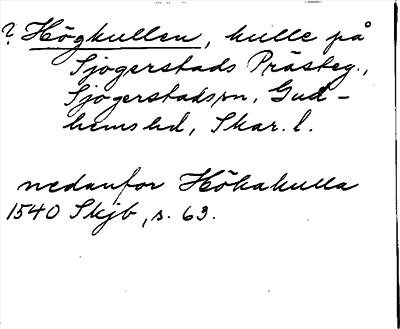 ? Högkullen, kulle på
Sjögerstads Prästeg.,
Sjögerstads sn, Gud-
hems hd, Skar. l.
nedanför Hökakulla
1540 Skjb, s. 63.